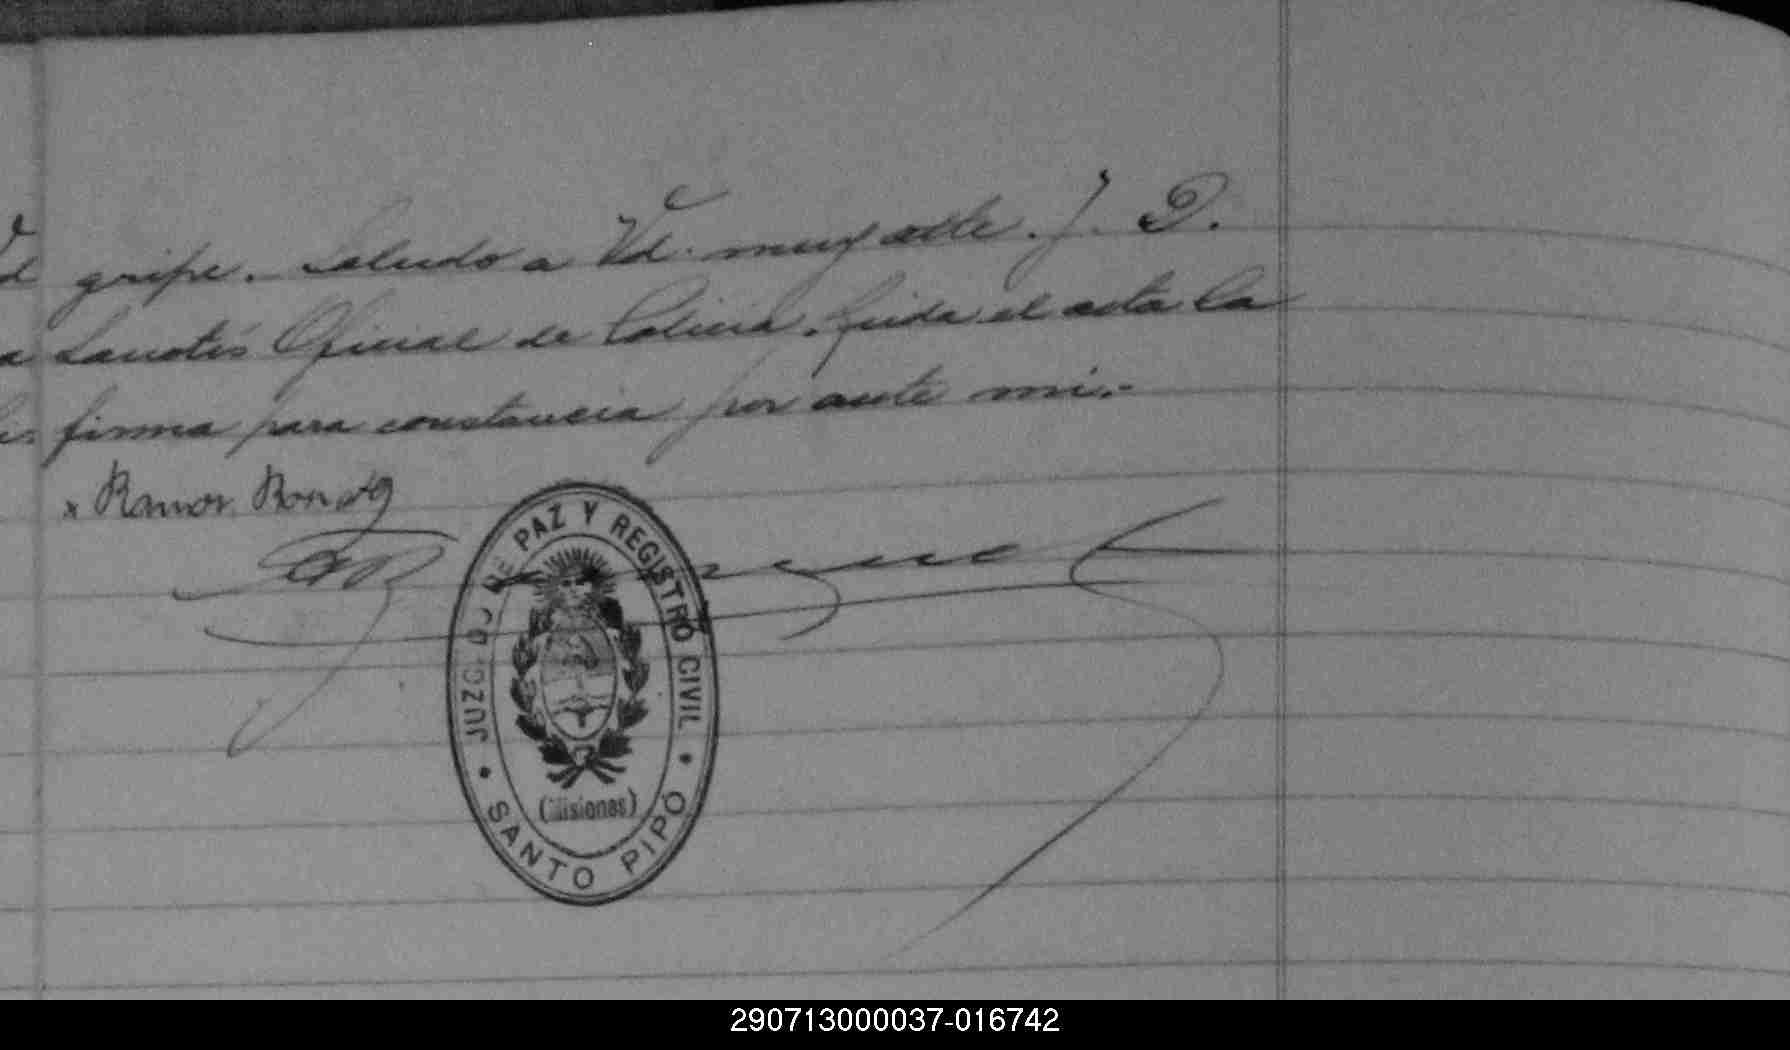 gripe. Saludo a Vd. muy atte. J. D.
Oficial de Policia. Leida el acta la
firma para constancia por ante mi.-
x Ramon
JUZGADO DE PAZ Y REGISTRO CIVIL
(Misiones)
SANTO PIPÓ
290713000037-016742